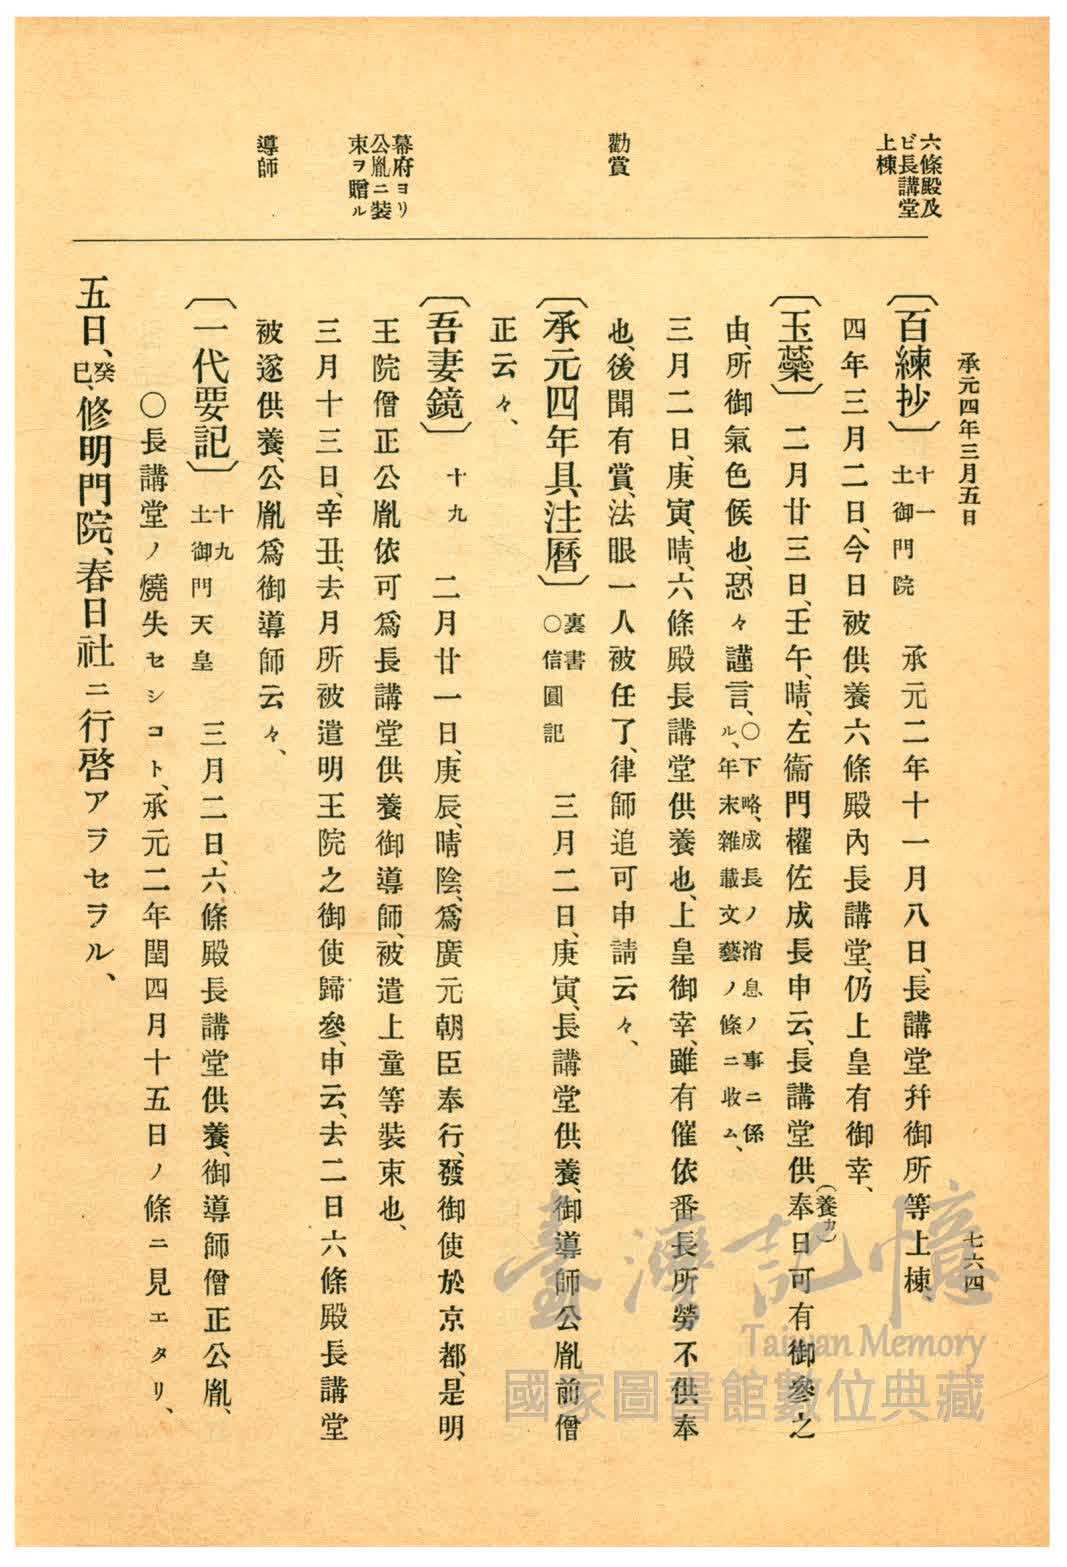 承元四年三月五日
七六四
六條殿及
ビ長講堂
上棟
勸賞
幕府ヨリ
公胤ニ裝
束ヲ贈ル
導師
〔百練抄〕十一 土御門院 承元二年十一月八日、長講堂幷御所等上棟
四年三月二日、今日被供養六條殿內長講堂、仍上皇有御幸、
〔玉蘂〕二月廿三日、壬午、晴、左衞門權佐成長申云、長講堂供奉(養カ)日可有御參之
由、所御氣色候也、恐々謹言、○下略、成長ノ消息ノ事ニ係ル、年末雜載文藝ノ條ニ收ム、
三月二日、庚寅、晴、六條殿長講堂供養也、上皇御幸、雖有催依番長所勞不供奉
也、後聞有賞、法眼一人被任了、律師追可申請云々、
〔承元四年具注曆〕裏書 ○信圓記 三月二日、庚寅、長講堂供養、御導師公胤前僧
正云々、
〔吾妻鏡〕十九 二月廿一日、庚辰、晴陰、爲廣元朝臣奉行、發御使於京都、是明
王院僧正公胤依可爲長講堂供養御導師、被遣上童等裝束也、
三月十三日、辛丑、去月所被遣明王院之御使歸參、申云、去二日六條殿長講堂
被遂供養、公胤爲御導師云々、
〔一代要記〕十九 土御門天皇 三月二日、六條殿長講堂供養、御導師僧正公胤、
○長講堂ノ燒失セシコト、承元二年閏四月十五日ノ條ニ見エタリ、
五日、癸巳、修明門院、春日社ニ行啓アラセラル、
臺灣記憶
Taiwan Memory
國家圖書館數位典藏